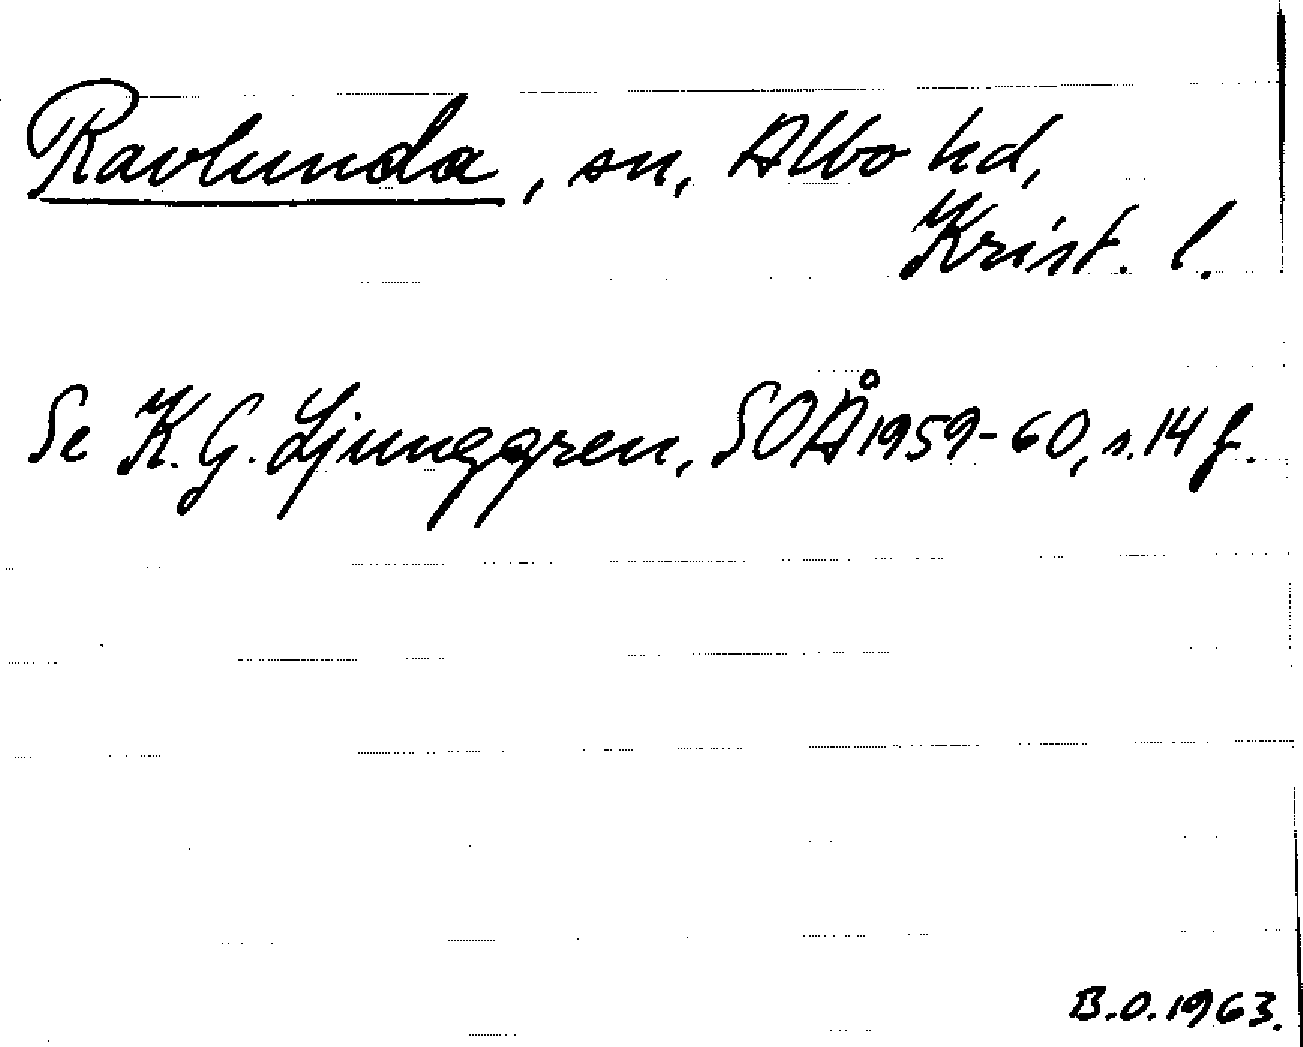 Ravlunda, sn, Albo hd,
Krist. l.
Se K. G. Ljunggren, SOÅ 1959-60, s. 14 f.
B.O. 1963.